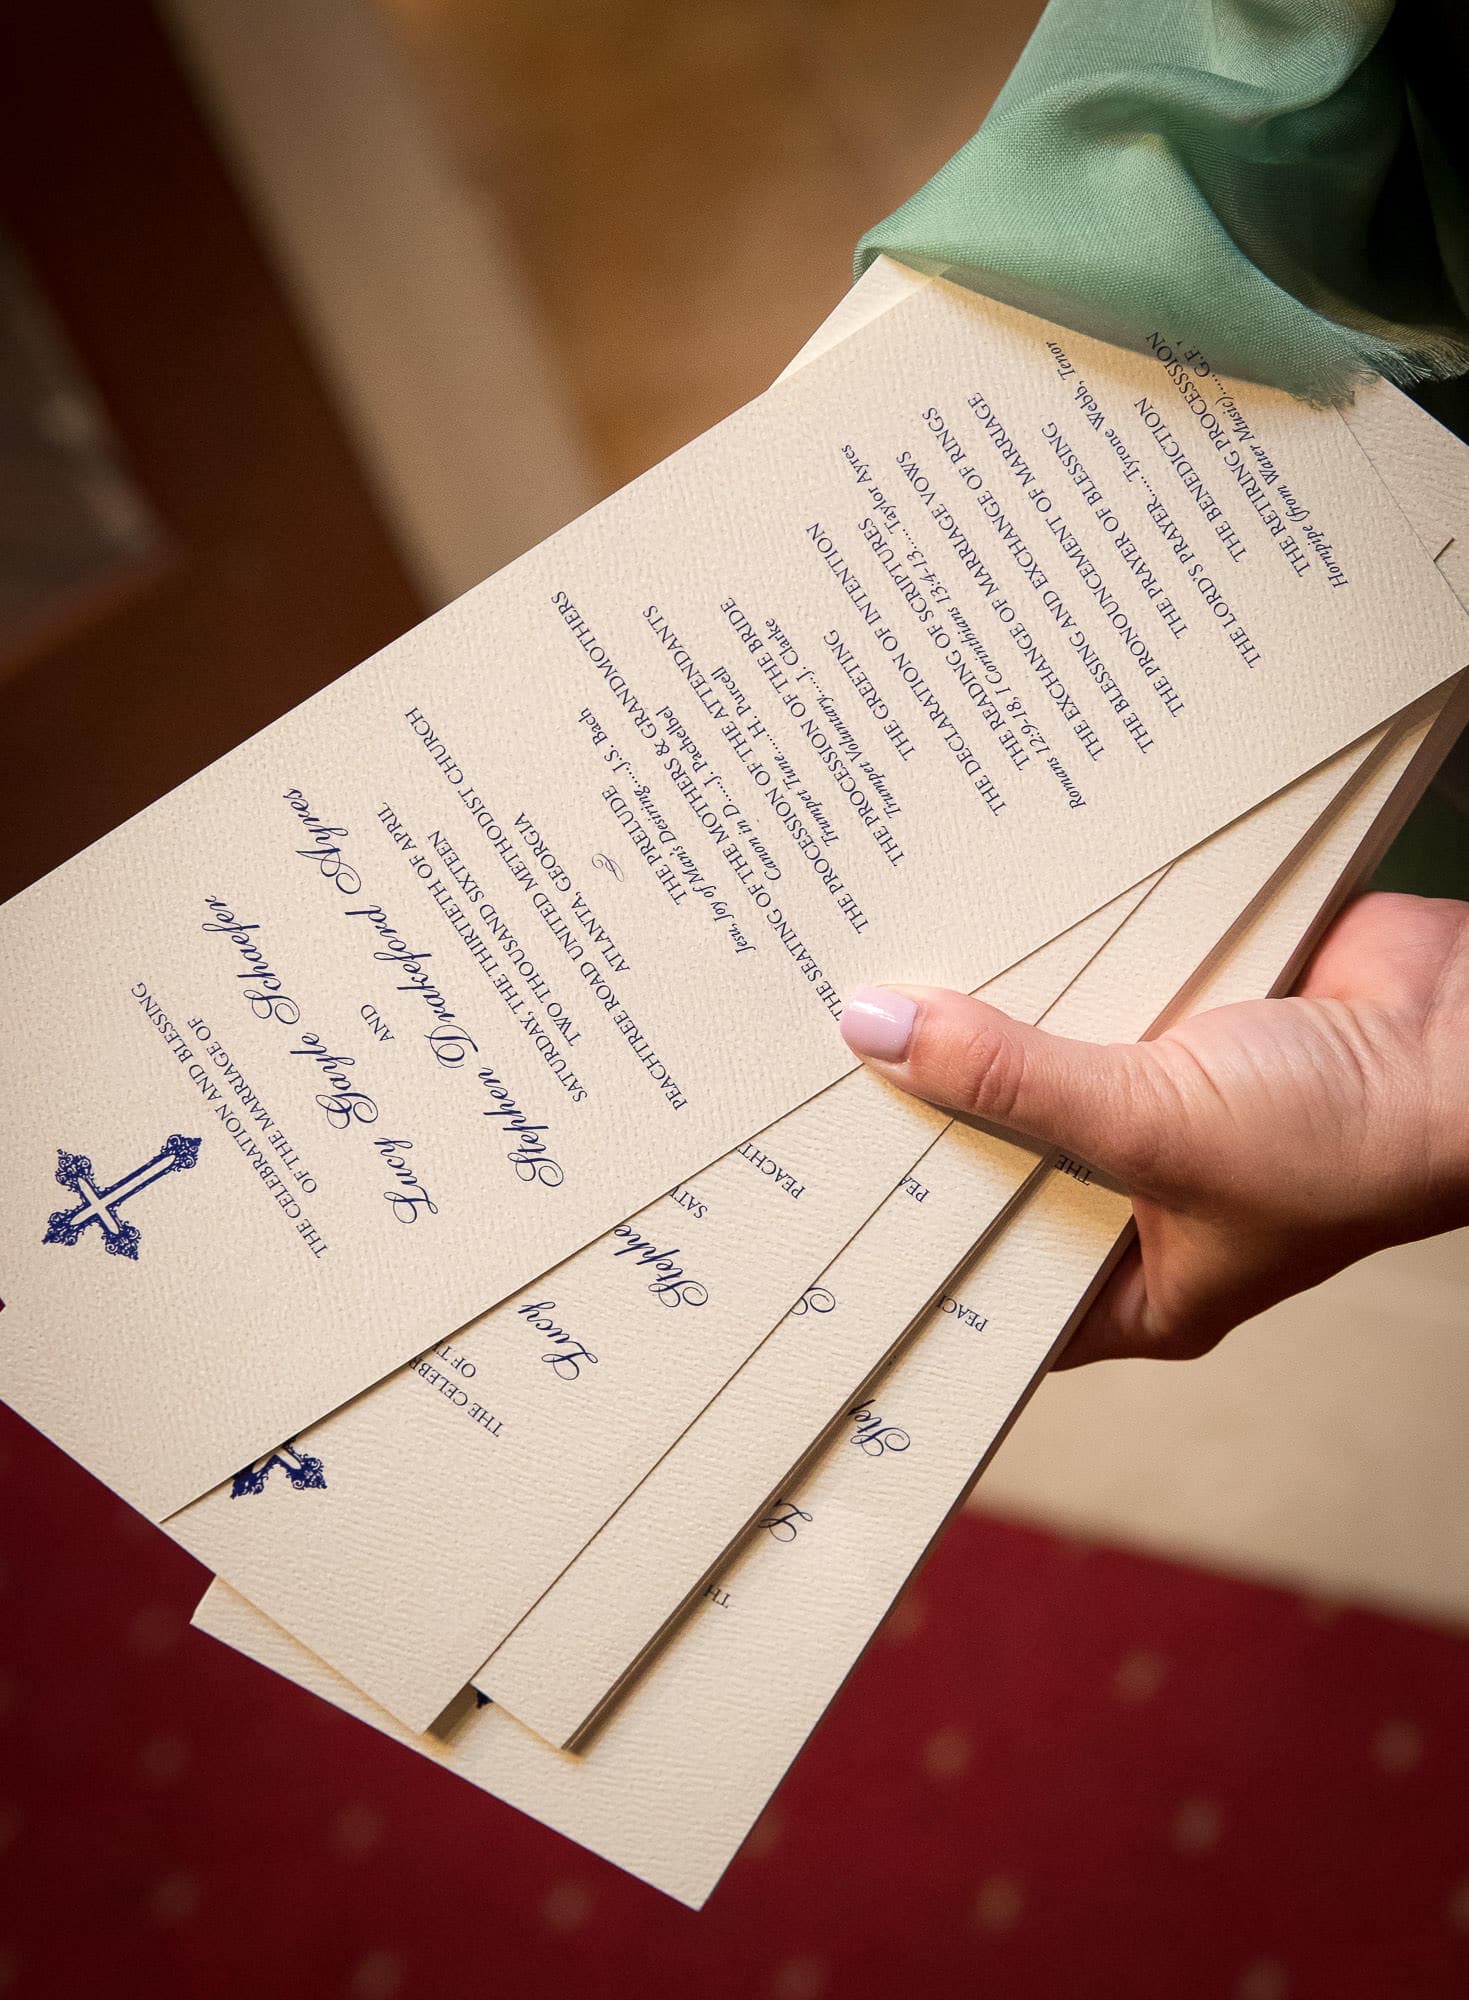 THE CELEBRATION AND BLESSING
OF THE MARRIAGE OF
Lucy Gayle Schaefer
AND
Stephen Drakeford Ayres
SATURDAY, THE THIRTIETH OF APRIL
TWO THOUSAND SIXTEEN
PEACHTREE ROAD UNITED METHODIST CHURCH
ATLANTA, GEORGIA
THE PRELUDE
Jesu, Joy of Man's Desiring.....J.S. Bach
THE SEATING OF THE MOTHERS & GRANDMOTHERS
Canon in D.....J. Pachelbel
THE PROCESSION OF THE ATTENDANTS
Trumpet Tune.....H. Purcell
THE PROCESSION OF THE BRIDE
Trumpet Voluntary.....J. Clarke
THE GREETING
THE DECLARATION OF INTENTION
THE READING OF SCRIPTURES
Romans 12:9-18, I Corinthians 13:4-13.....Taylor Ayres
THE EXCHANGE OF MARRIAGE VOWS
THE BLESSING AND EXCHANGE OF RINGS
THE PRONOUNCEMENT OF MARRIAGE
THE PRAYER OF BLESSING
THE LORD'S PRAYER.....Tyrone Webb, Tenor
THE BENEDICTION
THE RETIRING PROCESSION
Hornpipe (from Water Music).....G.F.
THE CELEB
OF T
Lucy
Stephe
SAT
PEACHT
S
PEA
TH
L
Step
PEACH
THE